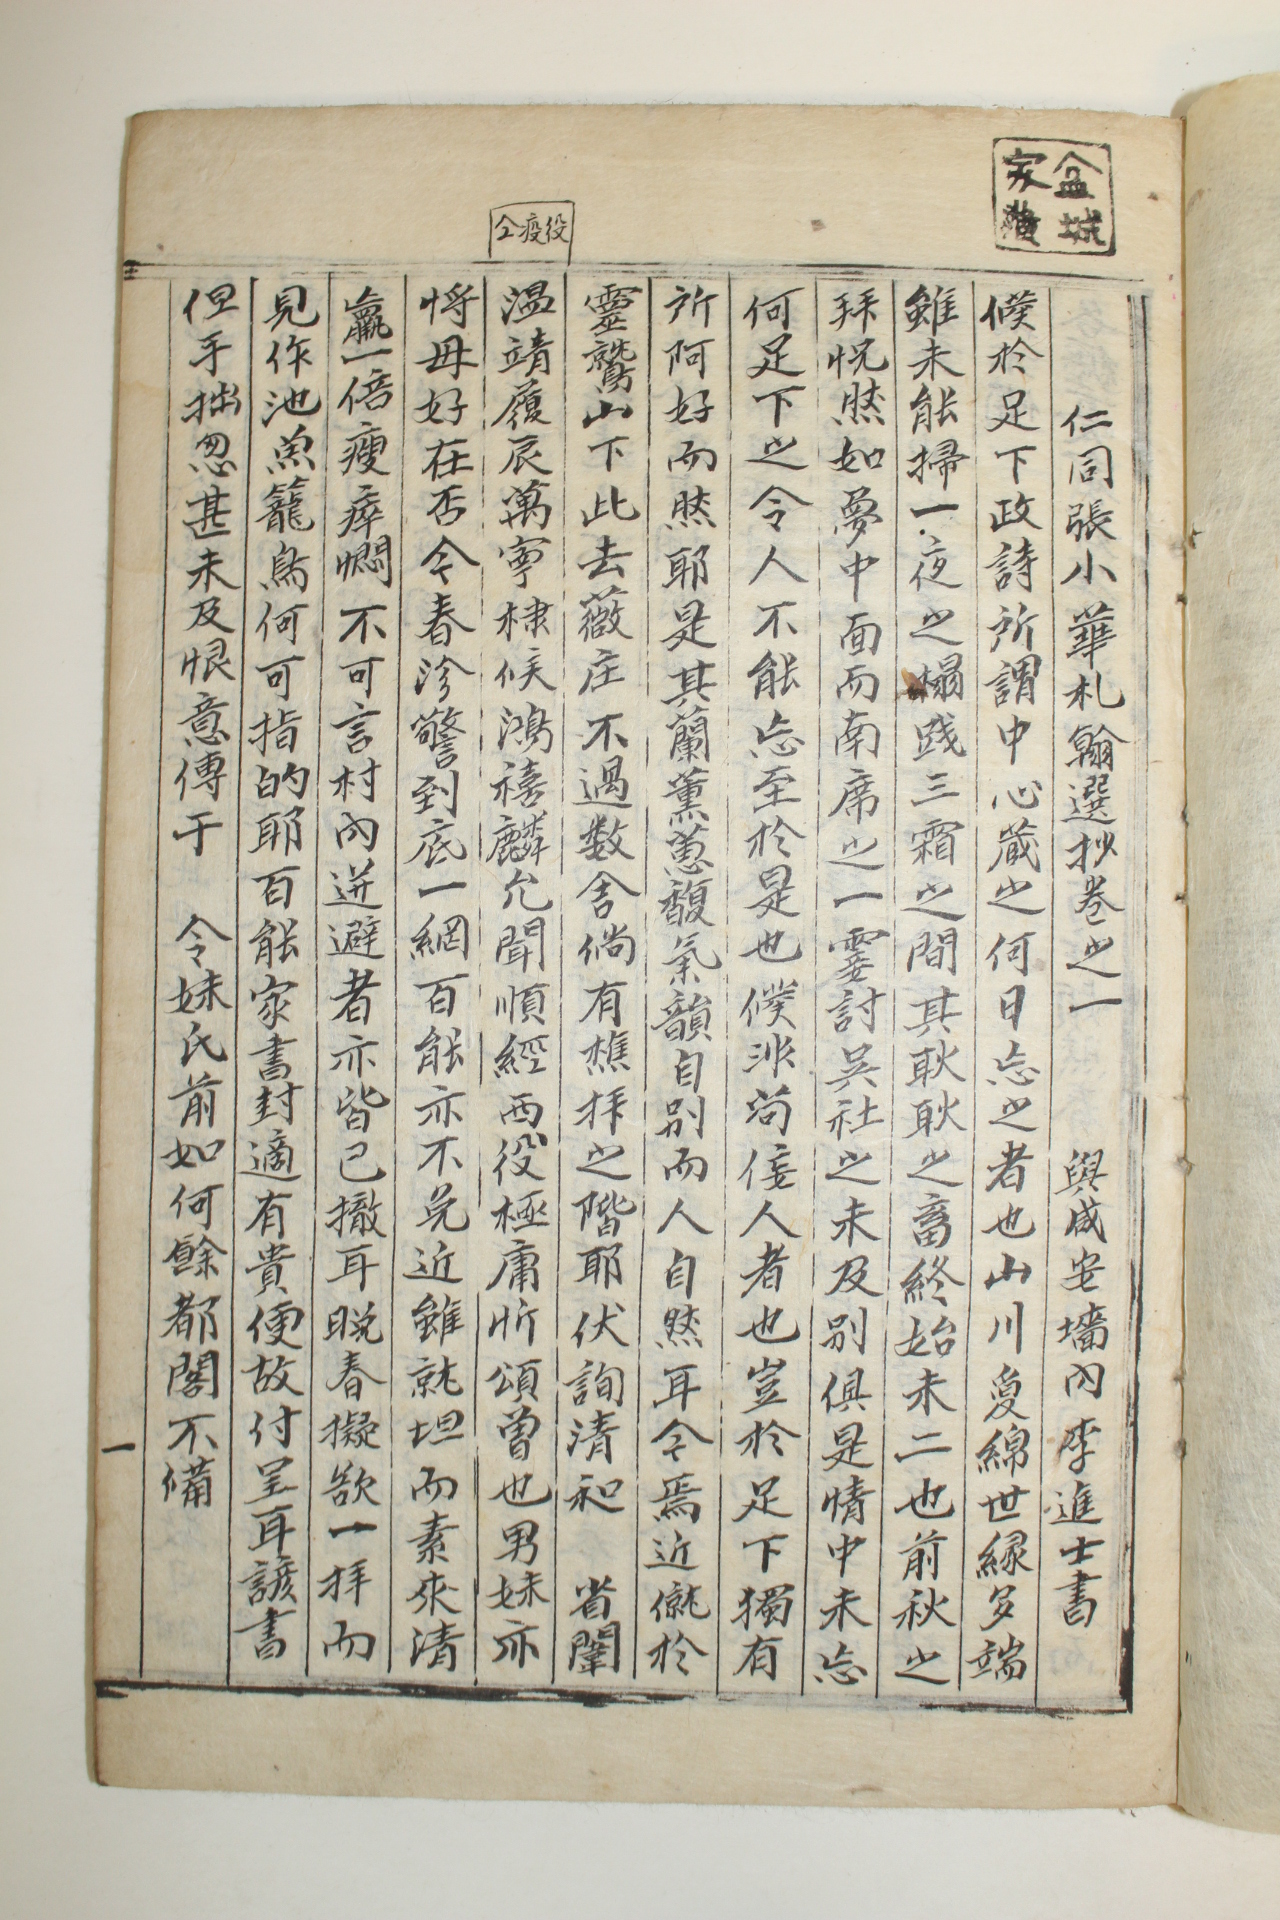 盆城
家藏
役疫仝
仁同張小華札翰選抄卷之一　與咸安墻內李進士書
僕於足下政詩所謂中心蔵之何日忘之者也山川夐綿世緣多端
雖未能掃一夜之榻踐三霜之間其耿耿之畜終始未二也前秋之
拜怳然如夢中面而南席之一霎討吳社之未及別俱是情中未忘
何足下之令人不能忘至於是也僕非苟侫人者也豈於足下獨有
所阿好而然耶是其蘭薰蕙馥氣韻自別而人自然耳令焉近僦於
靈鷲山下此去薇庄不過数舍倘有樵拜之階耶伏詢清和　省闈
温靖履辰萬寧棣候鴻禧麟允聞順經西役極庸忻頌曽也男妹亦
將毋好在否今春沴警到底一網百能亦不免近雖就坦而素來清
羸一倍瘦瘁憫不可言村內逬避者亦皆已撤耳晩春擬欲一拜而
見作池魚籠鳥何可指的耶百能家書封適有貴便故付呈耳諺書
但手拙怱甚未及恨意傳于　令妹氏前如何餘都閣不備
一